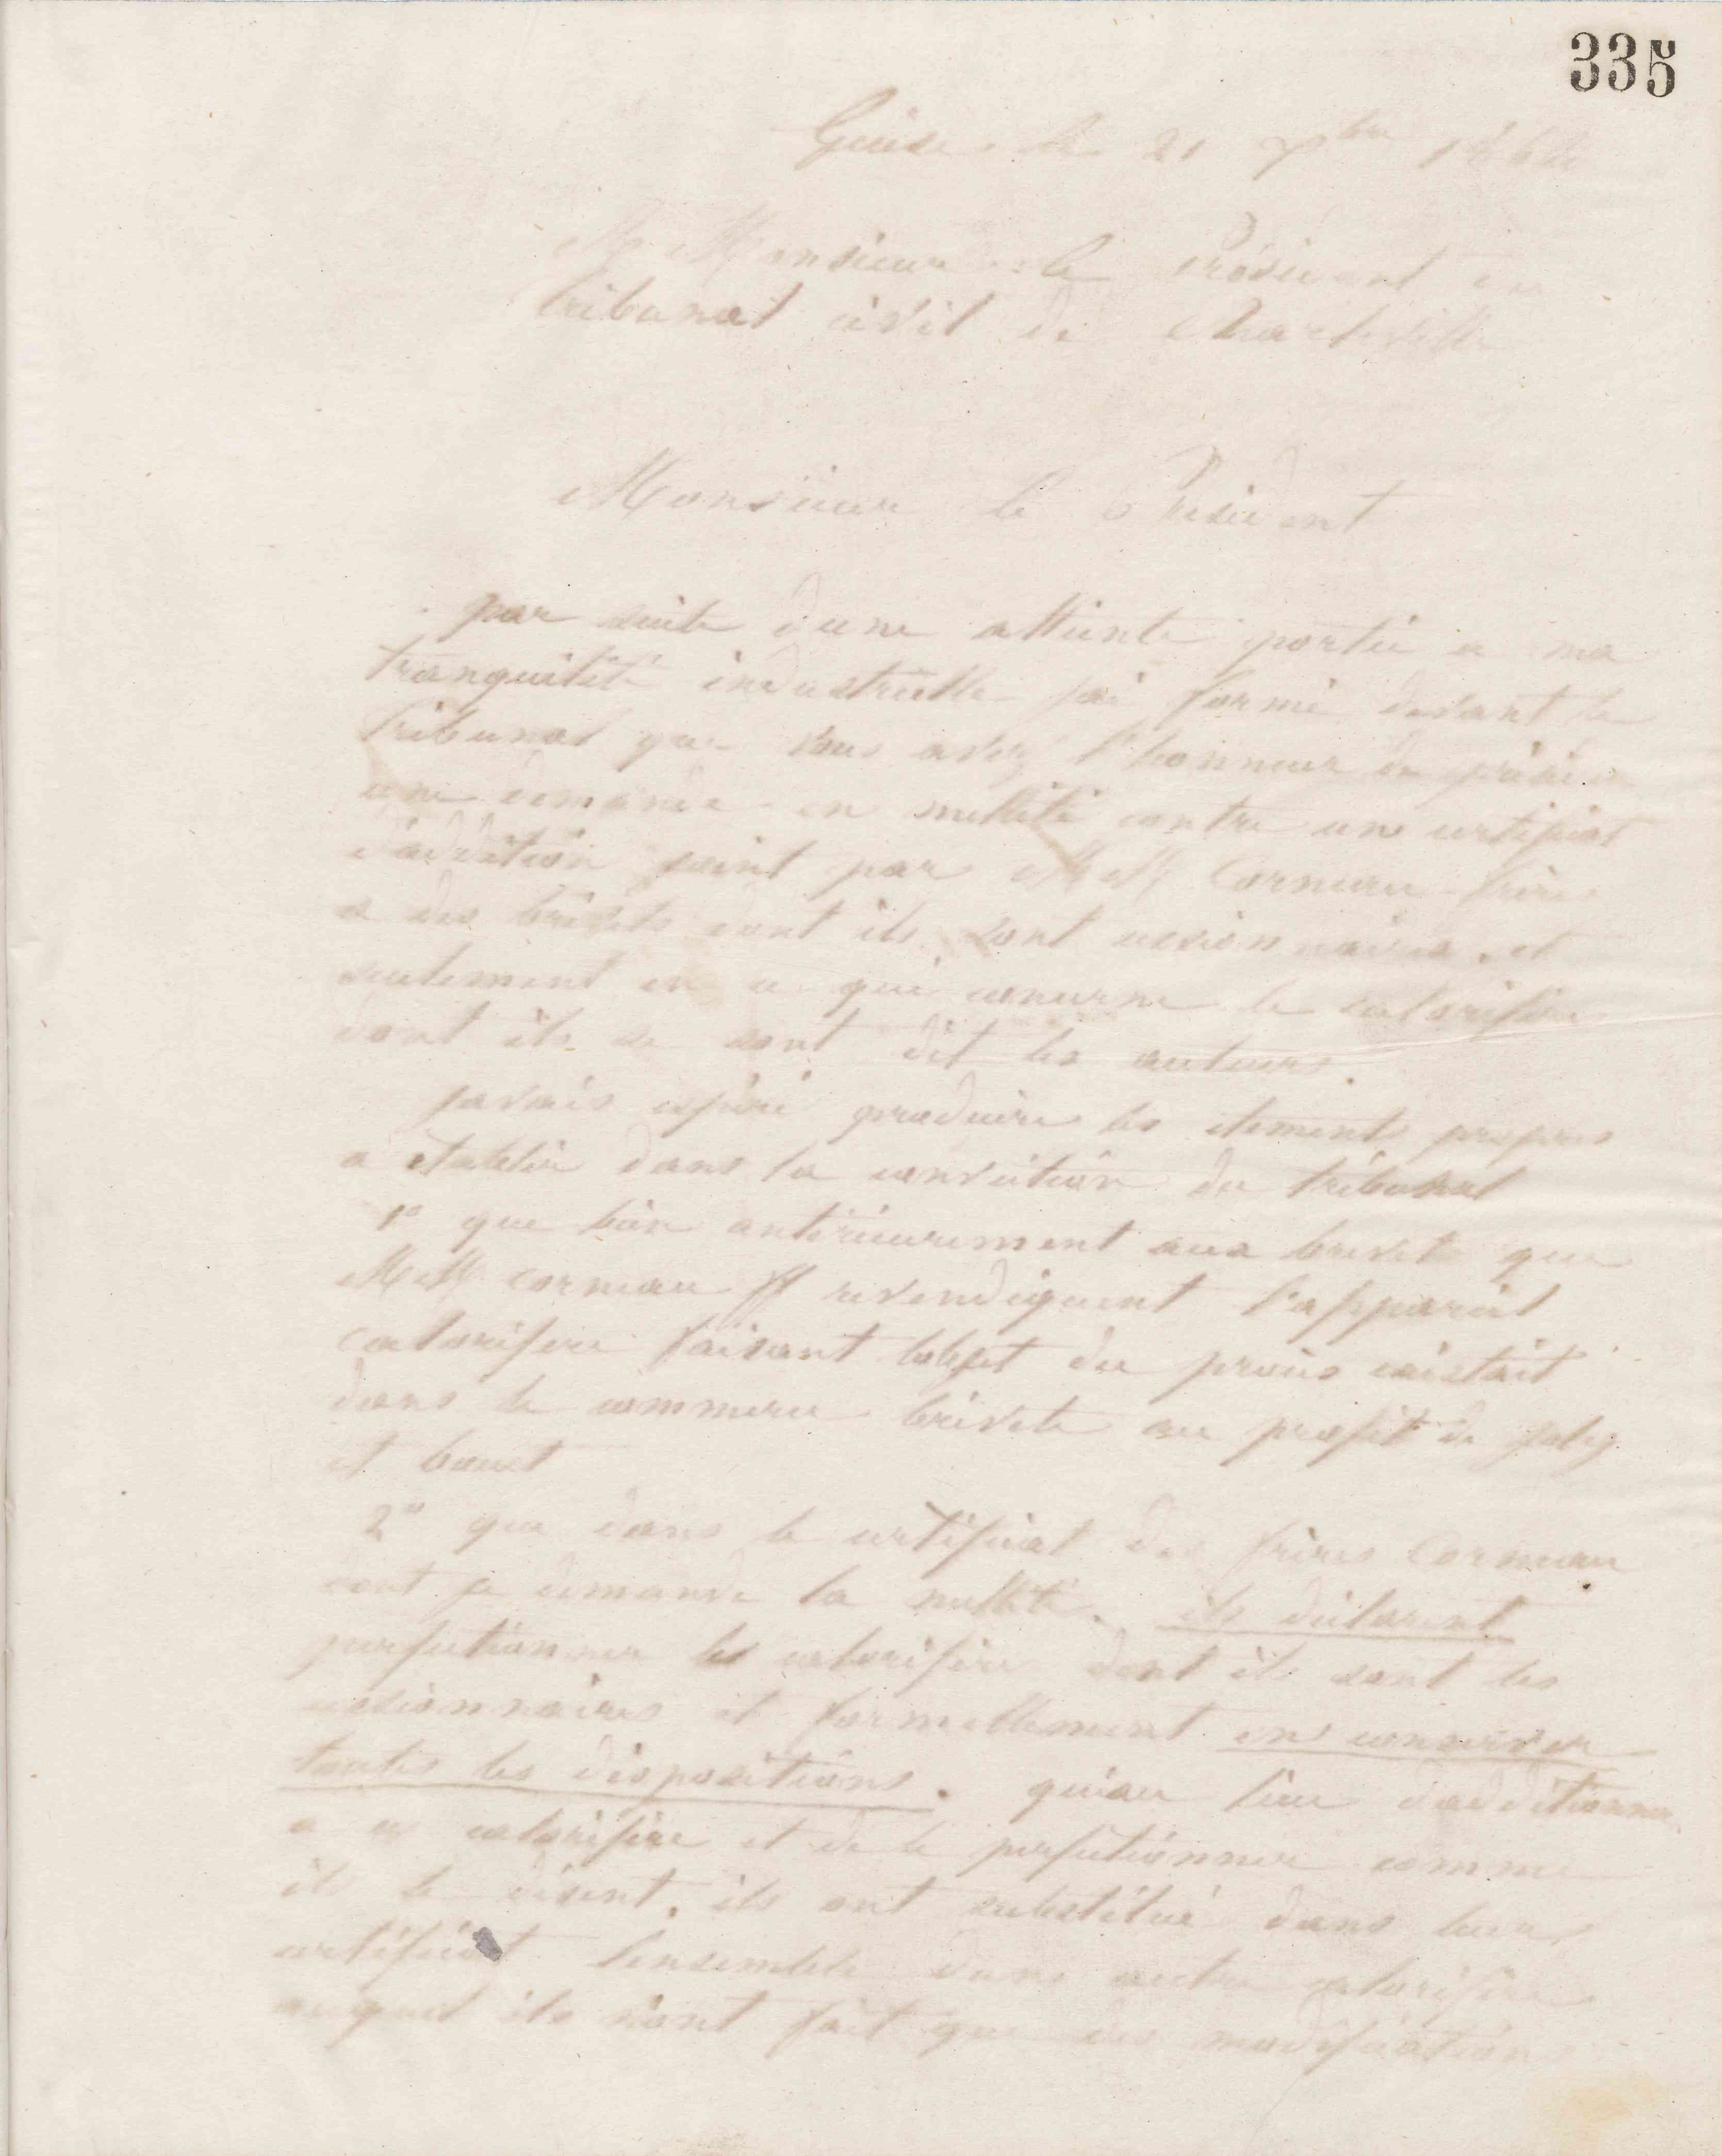 335
Guise le 21 7bre 186
A Monsieur le Président du
tribunal civil de Charleville
Monsieur le Président
par suite d'une atteinte portée a ma
tranquilité industrielle j'ai formé devant le
tribunal que vous avez l'honneur de présider
une demande en nullité contre un certificat
d'addition joint par MM Corneau frères
a des brevets dont ils sont cesionnaires, et
seulement en ce qui concerne le calorifère
dont ils se sont dit les auteurs.
javais espéré produire les element propres
a établir dans la conviction du tribunal
1o que bien antérieurement aux brevets que
MM corneau ff revendiquent l'appareil
calorifere faisant lobjet du procès existait
dans le commerce breveté au profit de
et
2o que dans le certificat des frères Corneau
dont je demande la nullité. ils déclarent
perfectionner les calorifère dont ils sont les
cesionnaires et formellement en conserver
toutes les dispositions. qu'au lieu d'additionner
a ce calorifère et de le perfectionner comme
ils le disent, ils ont substitué dans leur
certificat lensemble dun autre calorifère
auquel ils n'ont fait que des modification